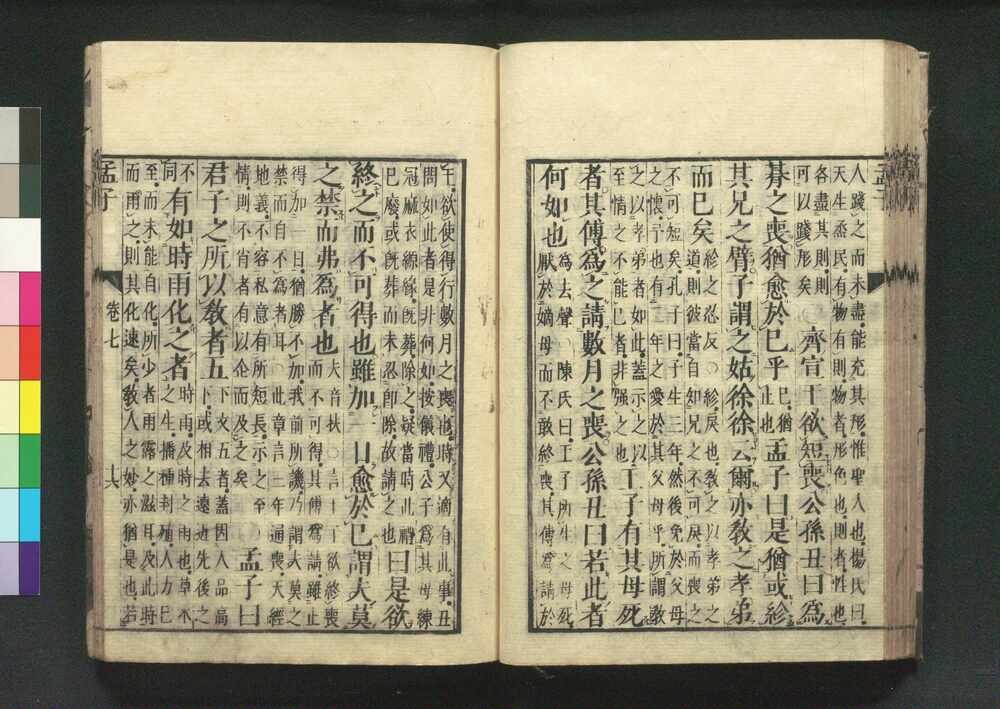 人踐之而未盡能充其形惟聖人也楊氏曰
天生烝民有物有則物者形色也則者性也
各盡其則則
可以踐形矣
○齊宣王欲短喪公孫丑曰爲
朞之喪猶愈於已乎
已猶
止也
孟子曰是猶或紾
其兄之臂子謂之姑徐徐云爾亦敎之孝弟
而已矣
紾之忍反○紾戾也敎之以孝弟之
道則彼當自知兄之不可戾而喪之
不可短矣孔子曰子生三年然後免於父母
之懷予也有三年之愛於其父母乎所謂敎
之以孝弟者如此蓋示之以
至情之不能已者非强之也
王子有其母死
者其傅爲之請數月之喪公孫丑曰若此者
何如也
爲去聲○陳氏曰王子所生之母死
厭於嫡母而不敢終喪其傅爲請於
王欲使得行數月之喪也時又適有此事丑
問如此者是非何如按儀禮公子爲其母練
冠麻衣縓緣旣葬除之疑當時此禮
已廢或旣葬而未忍卽除故請之也
曰是欲
終之而不可得也雖加一日愈於已謂夫莫
之禁而弗爲者也
夫音扶○言王子欲終喪
而不可得其傅爲請雖止
得加一日猶勝不加我前所譏乃謂夫莫之
禁而自不爲者耳○此章言三年通喪天經
地義不容私意有所短長示之至
情則不肖者有以企而及之矣
○孟子曰
君子之所以敎者五
下文五者蓋因人品高
下或相去遠近先後之
不
同
有如時雨化之者
時雨及時之雨也草木
之生播種封殖人力已
至而未能自化所少者雨露之滋耳及此時
而雨之則其化速矣敎人之妙亦猶是也若
孟子
卷七
十八
孟子